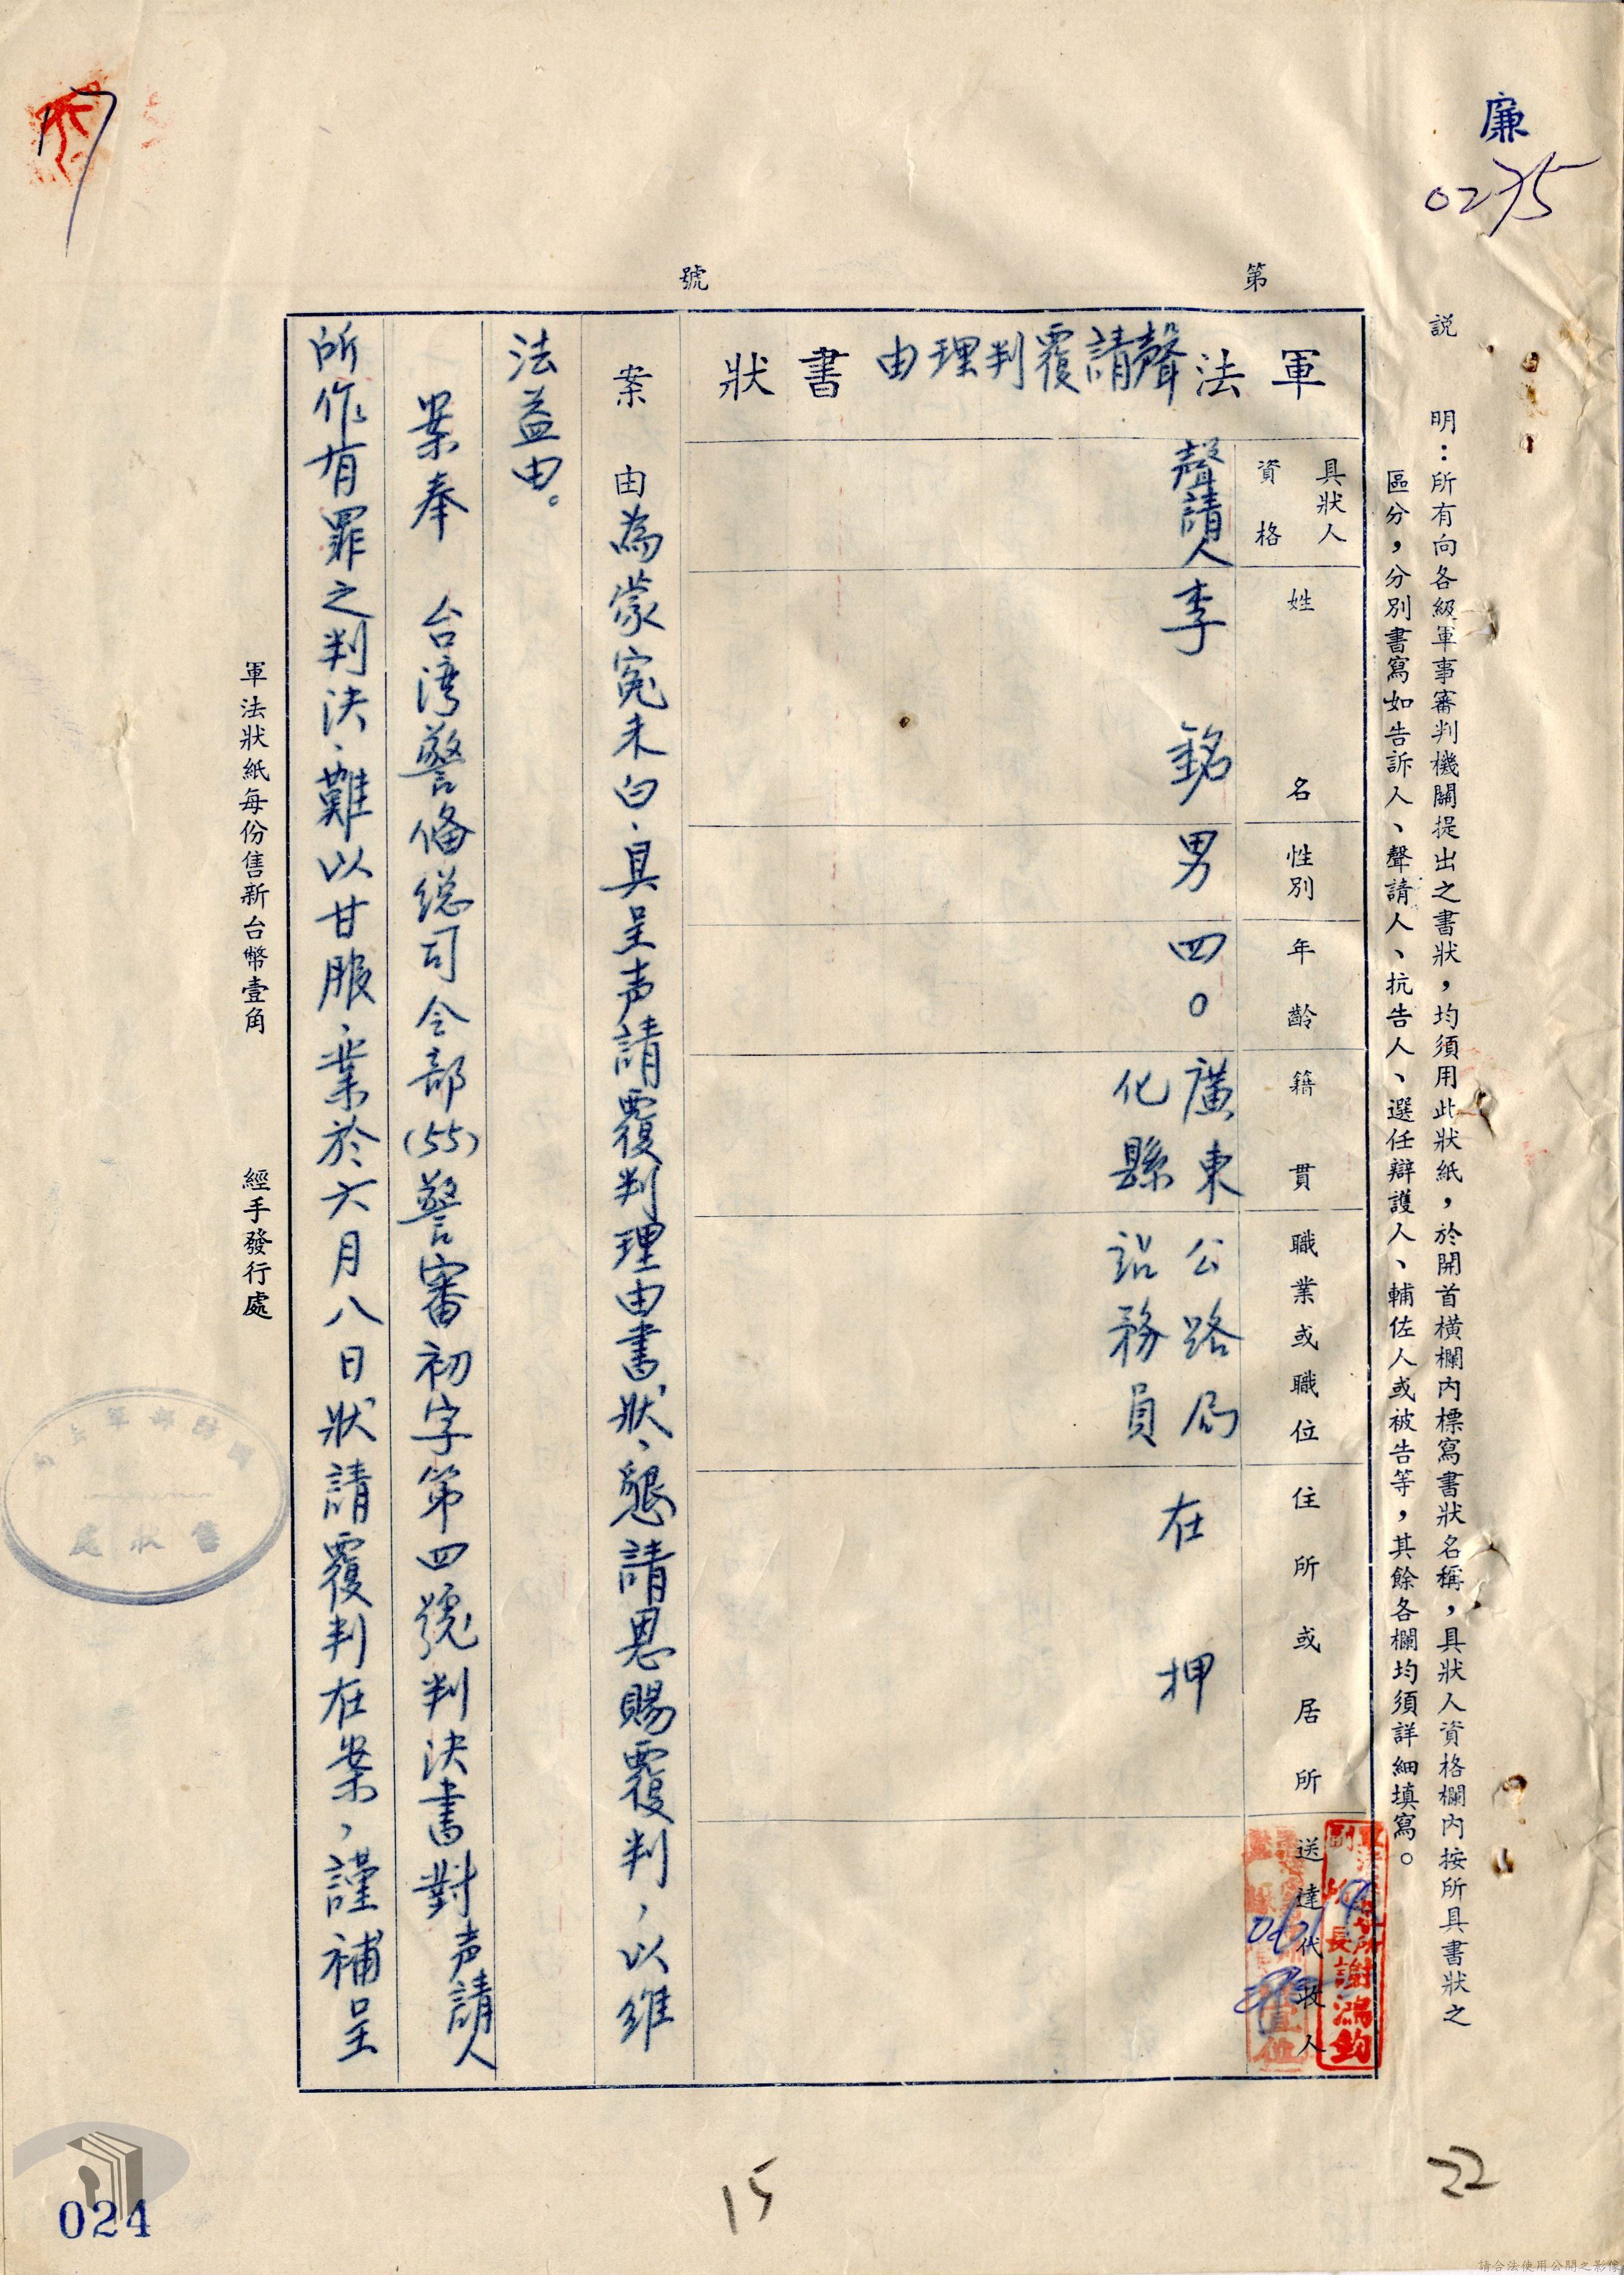 廉
0275
17
第
號
說明：所有向各級軍事審判機關提出之書狀，均須用此狀紙，於開首橫欄內標寫書狀名稱，具狀人資格欄內按所具書狀之
區分，分別書寫如告訴人、聲請人、抗告人、選任辯護人、輔佐人或被告等，其餘各欄均須詳細填寫。
軍法聲請覆判理由書狀
具狀人
資格
姓名
性別
年齡
籍貫
職業或職位
住所或居所
送達代收人
聲請人
李銘
男
四〇
廣東
化縣
公路局
訟務員
在押
副所長謝鴻鈞
案由
為蒙寃未白、具呈声請覆判理由書狀、懇請恩賜覆判，以維
法益由。
案奉 台湾警備總司令部(55)警審初字第四號判決書對声請人
所作有罪之判決、難以甘服、業於六月八日狀請覆判在案，謹補呈
軍法狀紙每份售新台幣壹角
經手發行處
售狀處
024
15
22
請合法使用公開之影像